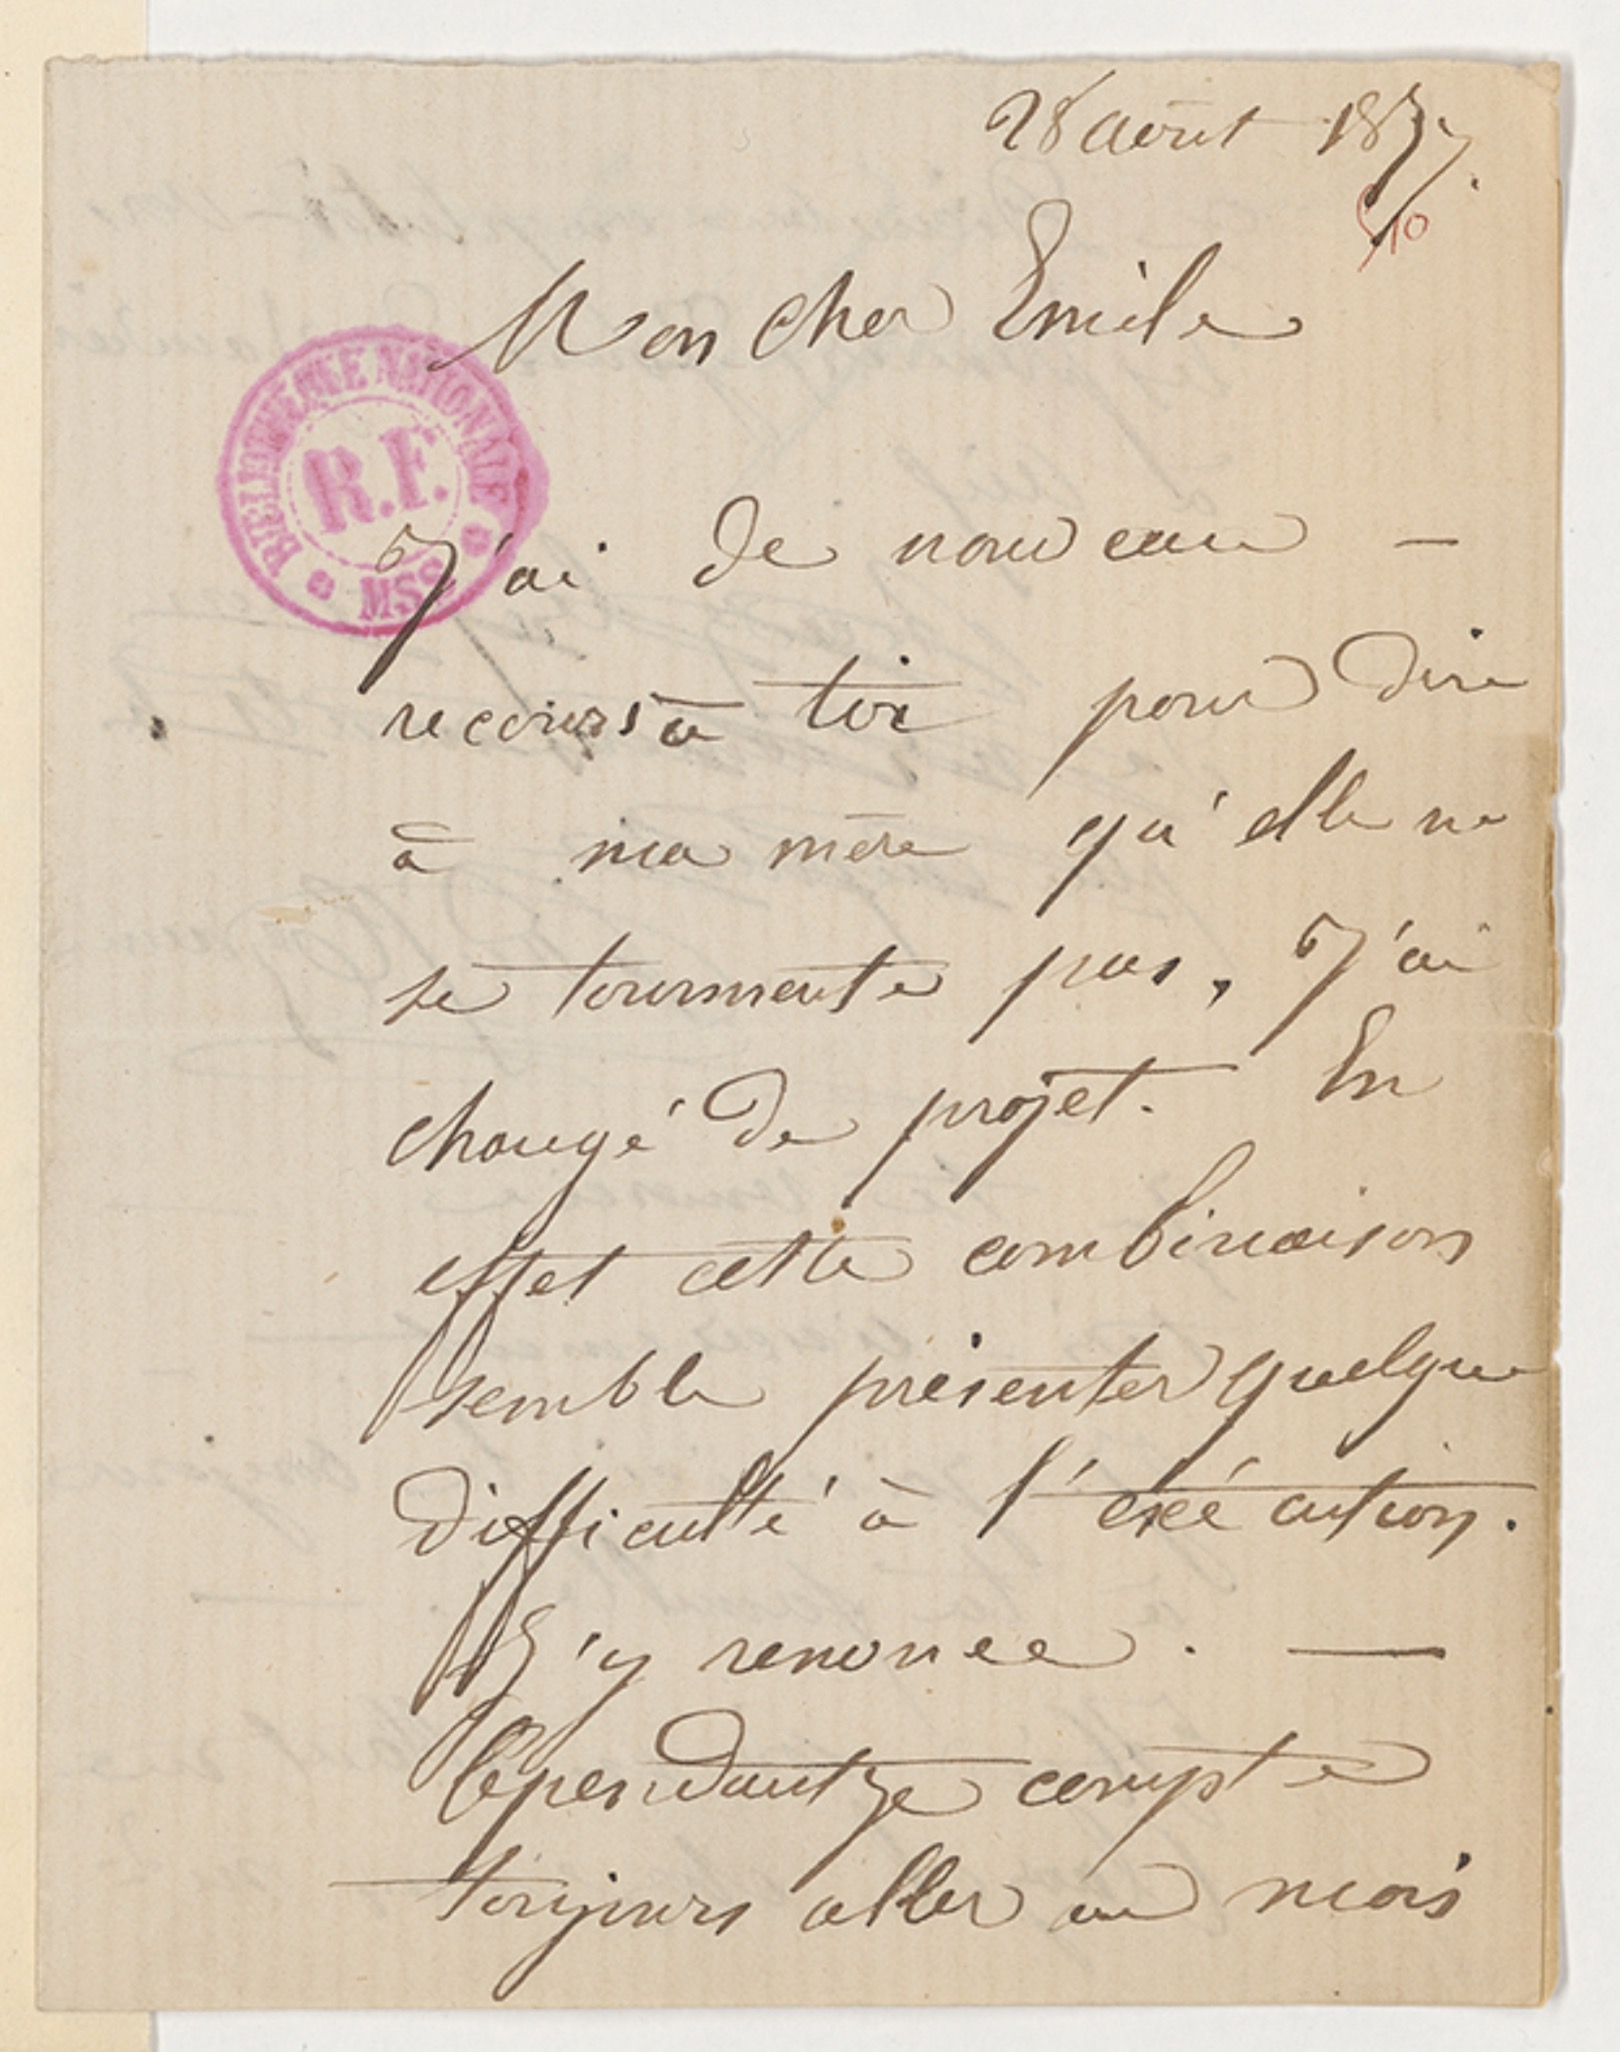 28 août 1877.
510
Mon cher Emile
BIBLIOTHÈQUE NATIONALE
R.F.
MSS
J'ai de nouveau –
recours à toi pour dire
à ma mère qu'elle ne
se tourmente pas, J'ai
changé de projet. En
effet cette combinaison
semble présenter quelque
difficulté à l'exécution.
J'y renonce. —
Cependant je compte
toujours aller au mois